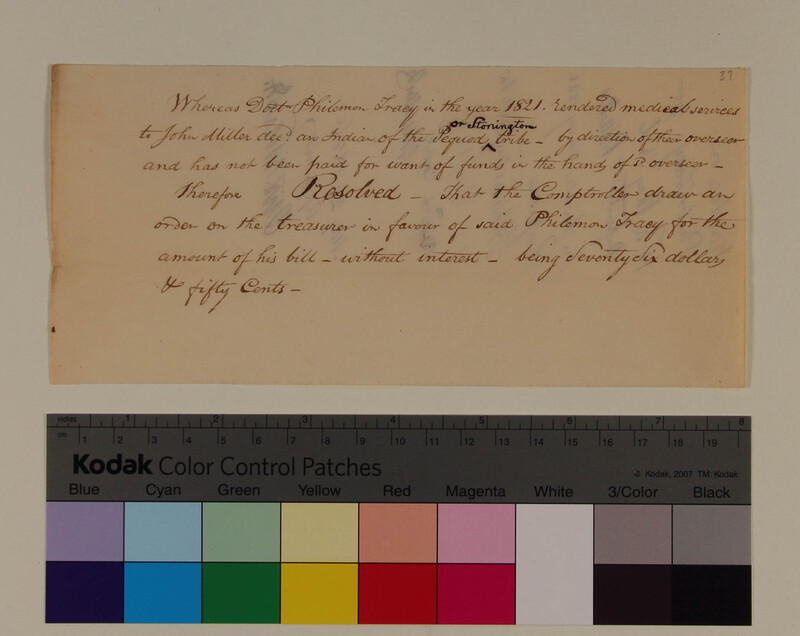 37
Whereas Doctr Philemon Tracy in the year 1821. rendered medical services
or Stonington
to John Miller decd. an Indian of the Pequod ^ tribe - by direction of their overseer
and has not been paid for want of funds in the hands of sd overseer -
Therefore Resolved - That the Comptroller draw an
order on the treasurer in favour of said Philemon Tracy for the
amount of his bill - without interest - being Seventy Six dollars
& fifty Cents -
inches 1 2 3 4 5 6 7 8
cm 1 2 3 4 5 6 7 8 9 10 11 12 13 14 15 16 17 18 19
Kodak Color Control Patches
© Kodak, 2007 TM: Kodak
Blue Cyan Green Yellow Red Magenta White 3/Color Black